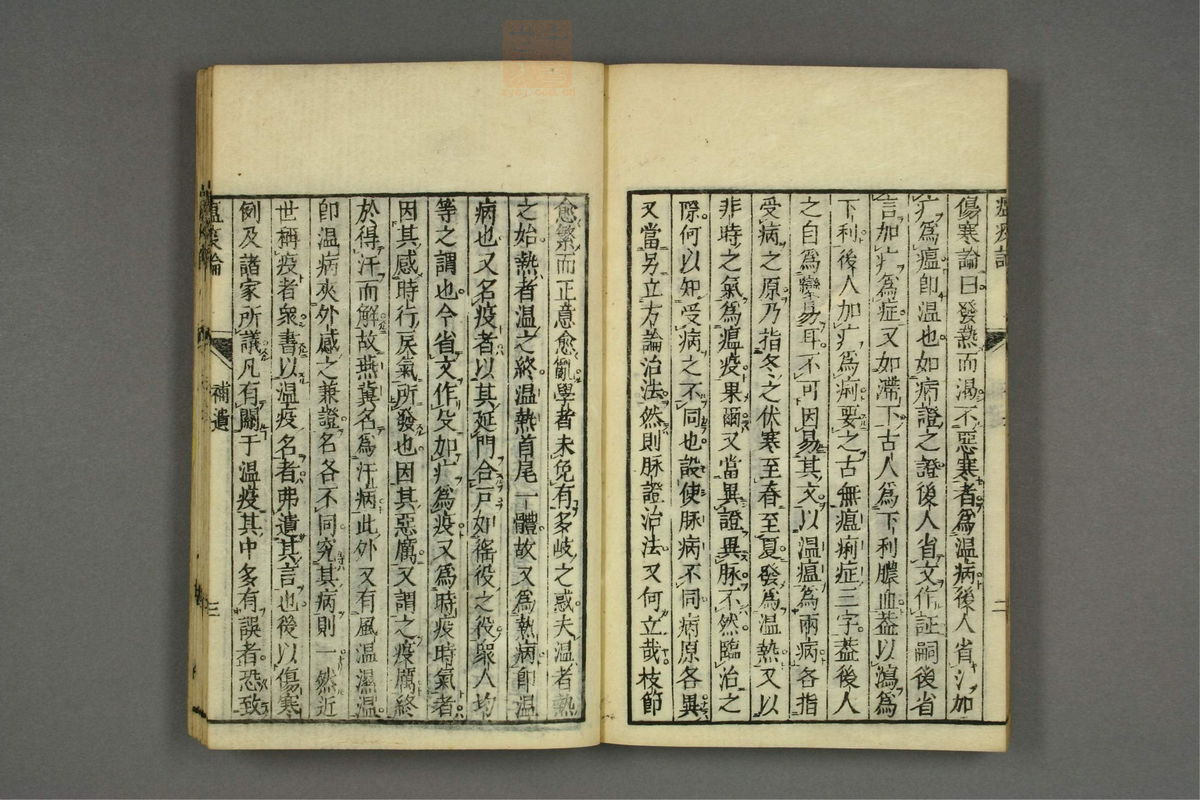 傷寒論曰發熱而渴不惡寒者爲温病後人省氵加
疒爲瘟卽温也如病證之證後人省文作証嗣後省
言加疒爲症又如滯下古人爲下利膿血葢以瀉爲
下利後人加疒爲痢要之古無瘟痢症三字葢後人
之自爲變易耳不可因易其文以温瘟爲兩病各指
受病之原乃指冬之伏寒至春至夏發爲温熱又以
非時之氣爲瘟疫果爾又當異證異脉不然臨治之
際何以知受病之不同也設使脉病不同病原各異
又當另立方論治法然則脉證治法又何立哉枝節
愈繁而正意愈亂學者未免有多歧之惑夫温者熱
之始熱者温之終温熱首尾一體故又爲熱病卽温
病也又名疫者以其延門合戸如徭役之役衆人均
等之謂也今省文作殳如疒爲疫又爲時疫時氣者
因其感時行戾氣所發也因其惡厲又謂之疫厲終
於得汗而解故燕冀名爲汗病此外又有風温濕温
卽温病夾外感之兼證名各不同究其病則一然近
世稱疫者衆書以温疫名者弗遺其言也後以傷寒
例及諸家所議凡有關于温疫其中多有誤者恐致
瘟疫論
補遺
三